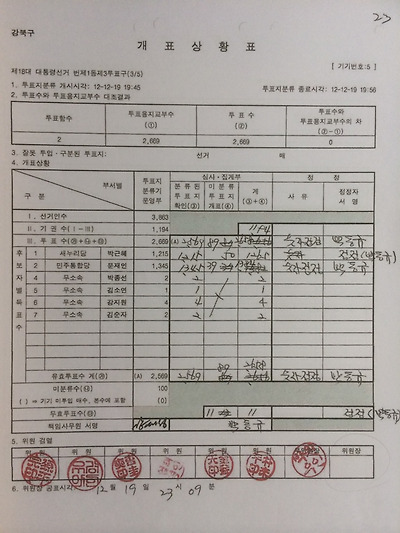 23
강북구
개 표 상 황 표
[ 기기번호:5 ]
제18대 대통령선거 번제1동제3투표구(3/5)
1. 투표지분류 개시시각: 12-12-19 19:45 투표지분류 종료시각: 12-12-19 19:56
2. 투표수와 투표용지교부수 대조결과
투표함수 투표용지교부수 (①) 투 표 수 (②) 투표수와 투표용지교부수의 차 (②-①)
2 2,669 2,669 0
3. 잘못 투입·구분된 투표지: 선거 매
4. 개표상황
구 분 부서별 투표지 분류기 운영부 심사·집계부 정 정
분류된 투표지 확인(③) 미분류 투표지 개표(④) 계 (③+④) 사 유 정정자 서 명
Ⅰ. 선거인수 3,863
Ⅱ. 기 권 수 (Ⅰ-Ⅲ) 1,194 1194
Ⅲ. 투 표 수 2,669 (A) 2569 숫자정정 박동규
후보자별득표수
1 새누리당 박근혜 1,215 1215 50 1265 정정(박동규)
2 민주통합당 문재인 1,345 1345 39 숫자정정 박동규
4 무소속 박종선 2 2 2
5 무소속 김소연 1 1 1
6 무소속 강지원 4 4 4
7 무소속 김순자 2 2 2
유효투표수 계 (A) 2,569 2569 89 2658 숫자정정 박동규
미분류수 100
( )는 기기 미투입 매수, 본수에 포함 (0)
무효투표수 11 11 정정(박동규)
책임사무원 서명 박동규
5. 위원 검열
위 원 위 원 위 원 위 원 위 원 위 원 위원장
6. 위원장 공표시각: 12 월 19 일 23 시 09 분